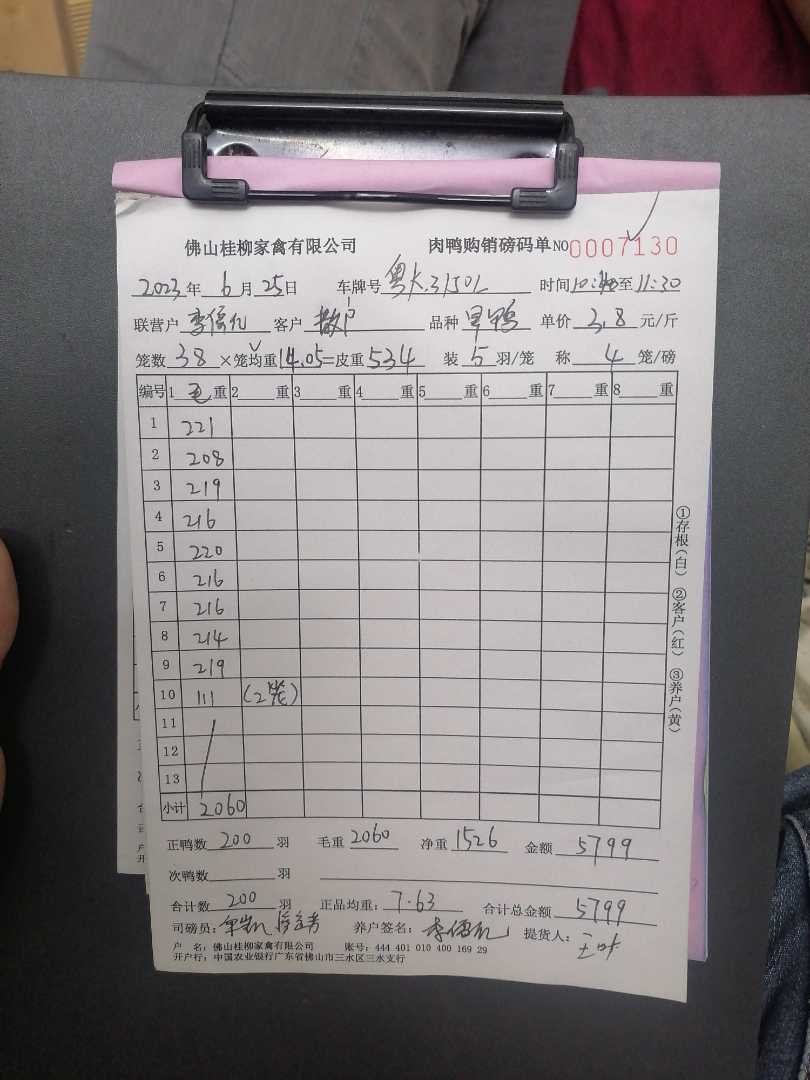 佛山桂柳家禽有限公司 肉鸭购销磅码单 NO 0007130
2023年 6月 25日 车牌号 粤K.3150L 时间 至11:30
联营户 客户 散户 品种 旱鸭 单价 3.8 元/斤
笼数 38 ×笼均重 14.05=皮重 534 装 5 羽/笼 称 4 笼/磅
编号 1 毛 重 2 重 3 重 4 重 5 重 6 重 7 重 8 重
1 221
2 208
3 219
4 216
5 220
6 216
7 216
8 214
9 219
10 111 (2笼)
11
12
13
小计 2060
①存根(白) ②客户(红) ③养户(黄)
正鸭数 200 羽 毛重 2060 净重 1526 金额 5799
次鸭数 羽
合计数 200 羽 正品均重: 7.63 合计总金额 5799
司磅员: 养户签名: 提货人:
户 名: 佛山桂柳家禽有限公司 账号: 444 401 010 400 169 29
开户行: 中国农业银行广东省佛山市三水区三水支行